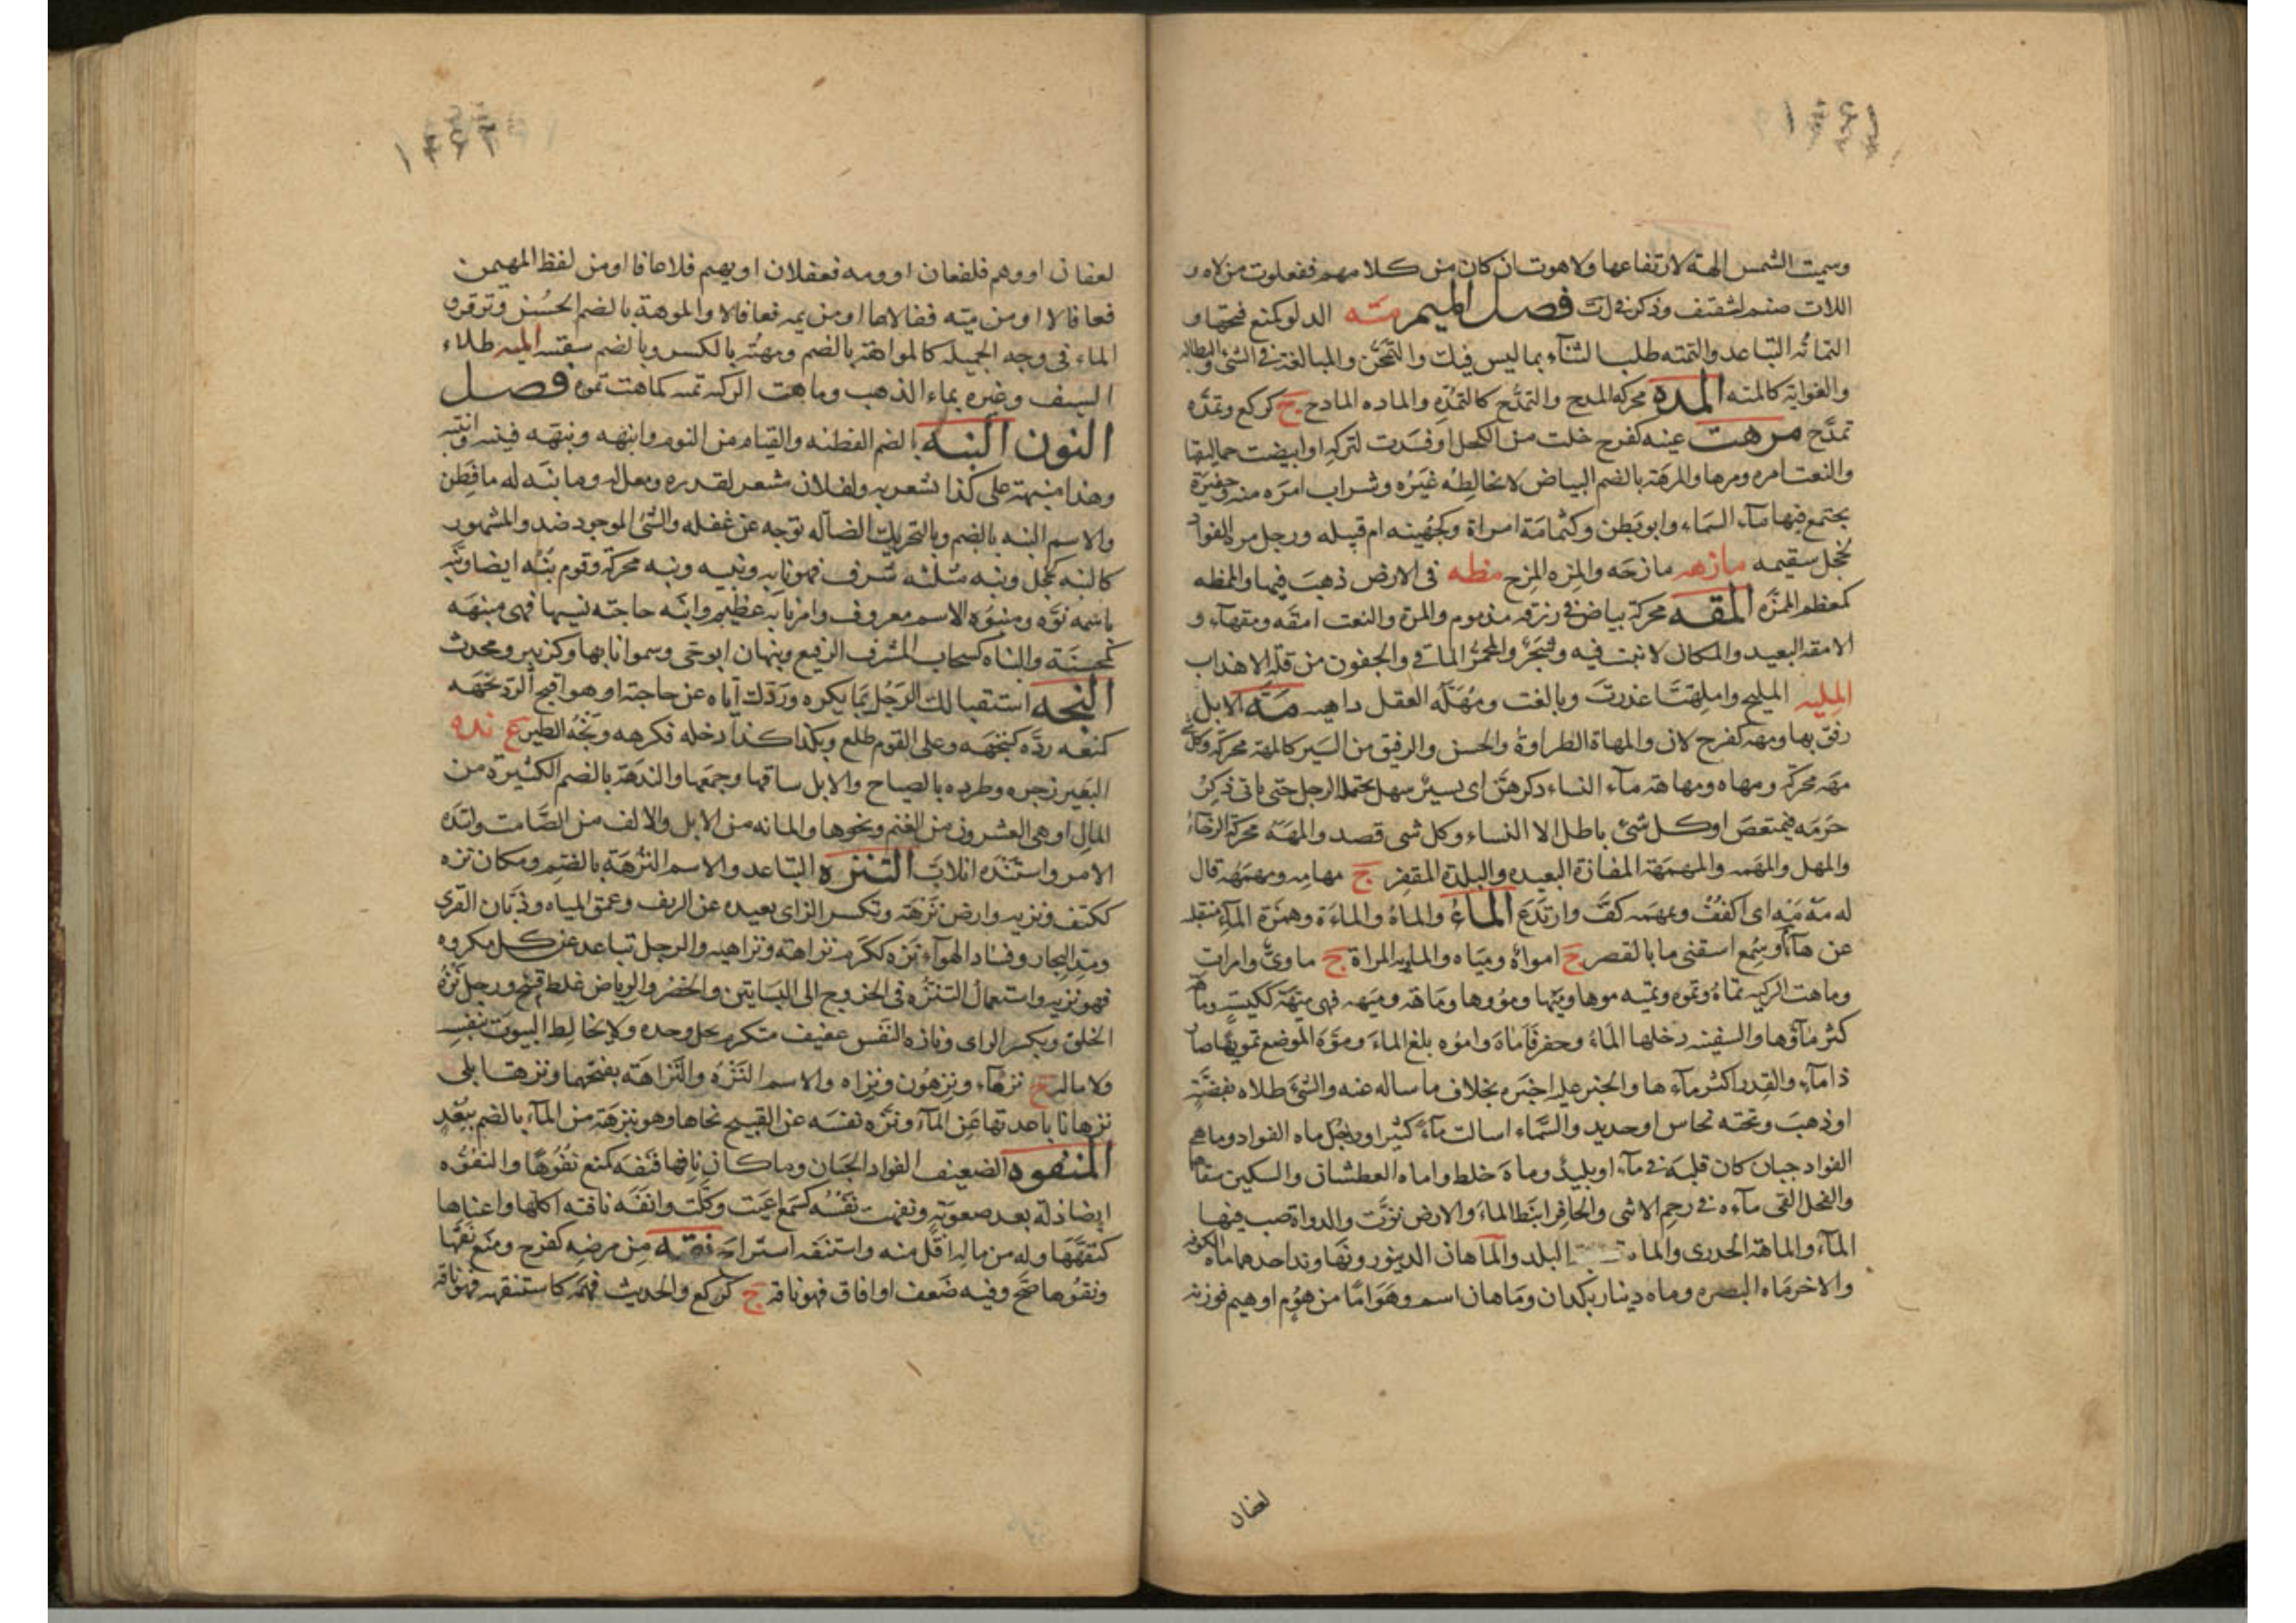 وسميت الشمس الهة لارتفاعها ولاهوت ان كان من كلامهم ففعلوت من لاه و
اللات صنم لثقيف وذكر في ل ت فصل الميم مته الدلو كمنع متحها و
التماته التباعد والتمته طلب الثناء بما ليس فيك والتمجن والمبالغة في الشئ والبطالة
والغواية كالمته المده محركة المدح والتمدح كالتمده والماده المادح ج كركع وتمده
تمدح مرهت عينه كفرح خلت من الكحل او فسدت لتركه او ابيضت حماليقها
والنعت امره ومرها والمرهة بالضم البياض لا يخالطه غيره وشراب امره منه وحفيرة
يجتمع فيها ماء السماء وابو بطن وكثمامة امراة وكجهينه ام قبيله ورجل مره الفواد
كخجل سقيمه مازهه مازحه والمزه المزح مطه في الارض ذهب فيها والممطه
كمعظم الممزه المقه محركة بياض في زرقه مذموم والمره والنعت امقه ومقهاء و
الامقه البعيد والمكان لا نبت فيه وشجر والمحمر الماقي والجفون من قلة الاهداب
المليه المليح وامليهت اعذرت وبالغت وممتله العقل داهيه مه الابل
رفق بها ومهه كفرح لان والمهاة الطراوة والحسن والرفيق من السير كالمهه محركة وكل شئ
مهه محركة ومهاه ومهاهة ماء النساء وذكرهن اى يسير سهل يحتمله الرجل حتى ياتي ذكر
حرمه فيمتعض او كل شئ باطل الا النساء وكل شى قصد والمهه محركة الرجاء
والمهل والمهمه والمهمهة المفازة البعيده والبلدة المقفر ج مهامه ومهمهه قال
له مه مه اى اكفف وبمهمه كف وارتدع الماء والماه والماءة وهمزة الماء منقلبه
عن هاء وسمع اسقنى ما بالقصر ج امواه ومياه والماويه المراة ج ماوى وامرات
وماهت الركيه تماه وتموه وتميه موها وميها ومووها وماهة وميهه فهي ميهة ككيسه وماهة
كثر ماؤها والسفينه دخلها الماء وحفر فاماه واموه بلغ الماء وموه الموضع تمويها صار
ذا ماء والقدر اكثر ماءها والخبر عليه اخبره بخلاف ما ساله عنه والشئ طلاه بفضة
او ذهب وتحته نحاس او حديد والسماء اسالت ماء كثيرا ورجل ماه الفواد وماهي
الفواد جبان كان قلبه في ماء او بليد وماه خلط واماه العطشان والسكين سقاهما
والفحل القى ماءه في رحم الانثى والحافر انبط الماء والارض نزت والدواة صب فيها
الماء والماهة الجدرى والماه البلد والماهان الدينور ونهاوند احدهما ماه الكوفه
والاخر ماه البصره وماه دينار بلدان وماهان اسم وهو اما من هوم او هيم فوزنه
لعفان
لعفان او وهم فلفعان او ومه فعقلان او يهم فلاعافا او من لفظ المهيمن
فعافالا او من ميه ففالاعا او من يمه فعافالا والموهة بالضم الحسن وترقرق
الماء في وجه الجميله كالمواهة بالضم ومهته بالكسر وبالضم سقته الميه طلاء
السيف وغيره بماء الذهب وماهت الركيه تميه كماهت تموه فصل
النون النبه بالضم الفطنه والقيام من النوم وانبهه ونبهه فتنبه وانتبه
وهذا منبهة على كذا مشعر به ولفلان مشعر بقدره ومعل له وما نبه له ما فطن
والاسم النبه بالضم وبالتحريك الضاله توجد عن غفله والشئ الموجود ضد والمشهور
كالنبه كخجل ونبه مثلثه شرف فهو نابه ونبيه ونبه محركة وقوم نبه ايضا ونبه
باسمه نوه ومنبوه الاسم معروف وامر نابه عظيم وانبه حاجته نسيها فهى منبهه
كمحسنة والنباه كسحاب المشرف الرفيع ونبهان ابو حى وسموا نابها وكزبير ومحدث
النجه استقبالك الرجل بما يكره وردك اياه عن حاجته او هو اقبح الرد نجهه
كمنعه رده كتنجهه وعلى القوم طلع وبلد كذا دخله فكرهه ونجه الطير ع نده
البعير زجره وطرده بالصياح والابل ساقها وجمعها والندهة بالضم الكثيرة من
المال او هى العشرون من الغنم ونحوها والمائه من الابل والالف من الصامت وانتده
الامر واستنده اتلاب التنزه التباعد والاسم النزهة بالضم ومكان نزه
ككتف ونزيه وارض نزهة وتكسر الزاى بعيده عن الريف وغمق المياه وذبان القرى
ومد البحار وفساد الهواء نزه ككرم نزاهة ونزاهيه والرجل تباعد عن كل مكروه
فهو نزيه واستعمال التنزه في الخروج الى البساتين والخضر والرياض غلط قبيح ورجل نزه
الخلق وبكسر الزاى ونازه النفس عفيف متكرم يحل وحده ولا يخالط البيوت بنفسه
ولا ماله ج نزهاء ونزهون ونزاه والاسم النزه والنزاهة بفتحهما ونزهت ابلى
نزها باعدتها عن الماء ونزه نفسه عن القبيح نحاها وهو بنزهة من الماء بالضم ببعد
المنفوه الضعيف الفواد الجبان وما كان نافها فنفه كمنع نفوها والنفوه
ايضا ذلة بعد صعوبة ونفهت نفسه كسمع اعيت وكلت وانفه ناقته اكلها واعياها
كنفهها وله من ماله اقل منه واستنفه استراح نقه من مرضه كفرح ومنع نقها
ونقوها صح وفيه ضعف او افاق فهو ناقه ج كركع والحديث فهمه كاستنقهه فهو ناقه